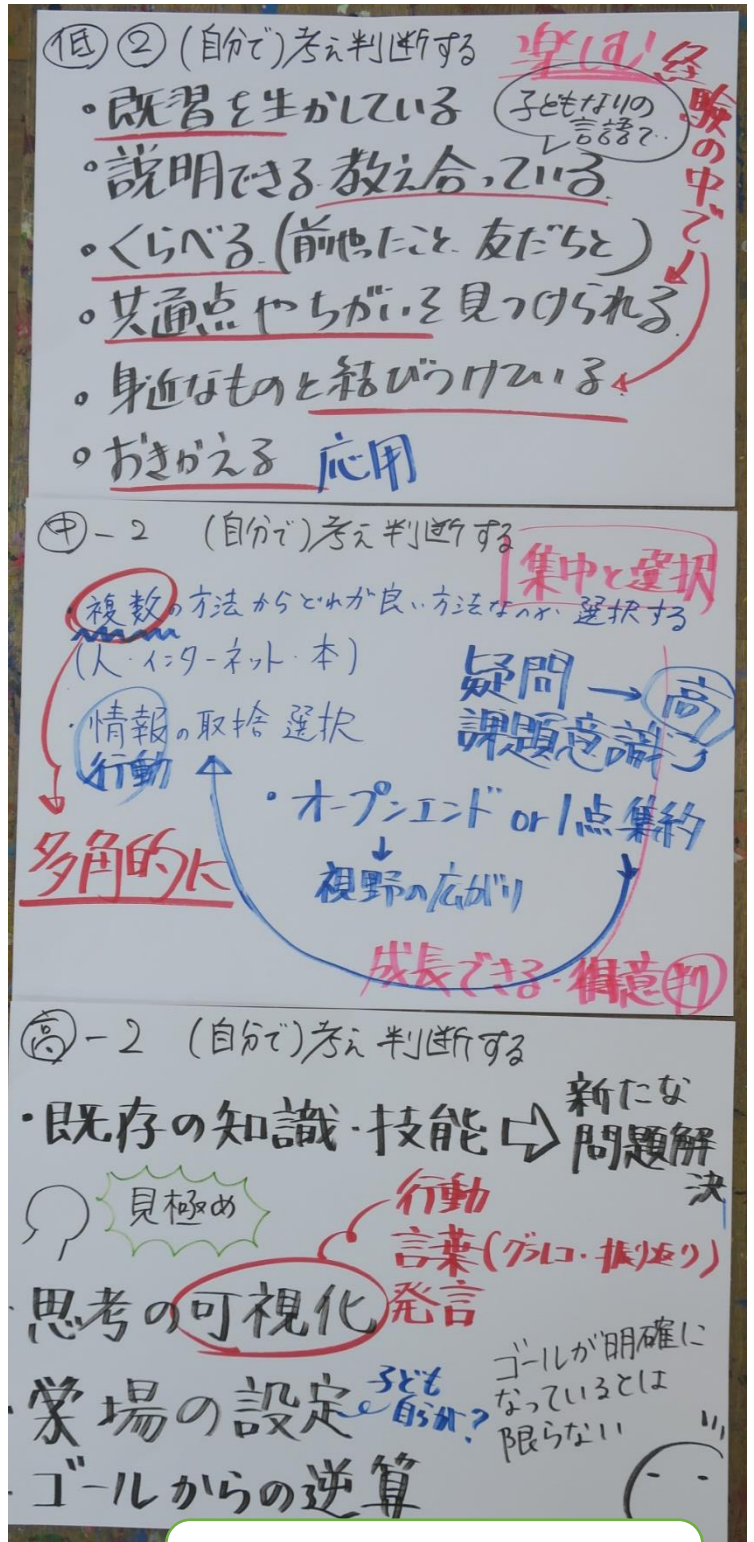 低 ② (自分で)考え判断する
楽しむ
経験の中で
・既習を生かしている
子どもなりの
言語で‥
・説明できる 教え合っている
・くらべる (前やったこと 友だちと)
・共通点やちがいを見つけられる
・身近なものと結びつけている
・おきかえる 応用
中-2 (自分で)考え判断する
集中と選択
・複数の方法からどれが良い方法なのか 選択する
(人・インターネット・本)
疑問→高
課題意識
・情報の取捨選択
行動
・オープンエンド or 1点集約
↓
視野の広がり
多角的に
成長できる・得意
高-2 (自分で)考え判断する
・既存の知識・技能⇨新たな
問題解
決
見極め
行動
言葉(グラレコ・振り返り)
発言
思考の可視化
場の設定
子ども
自らが?
ゴールが明確に
なっているとは
限らない
・ゴールからの逆算